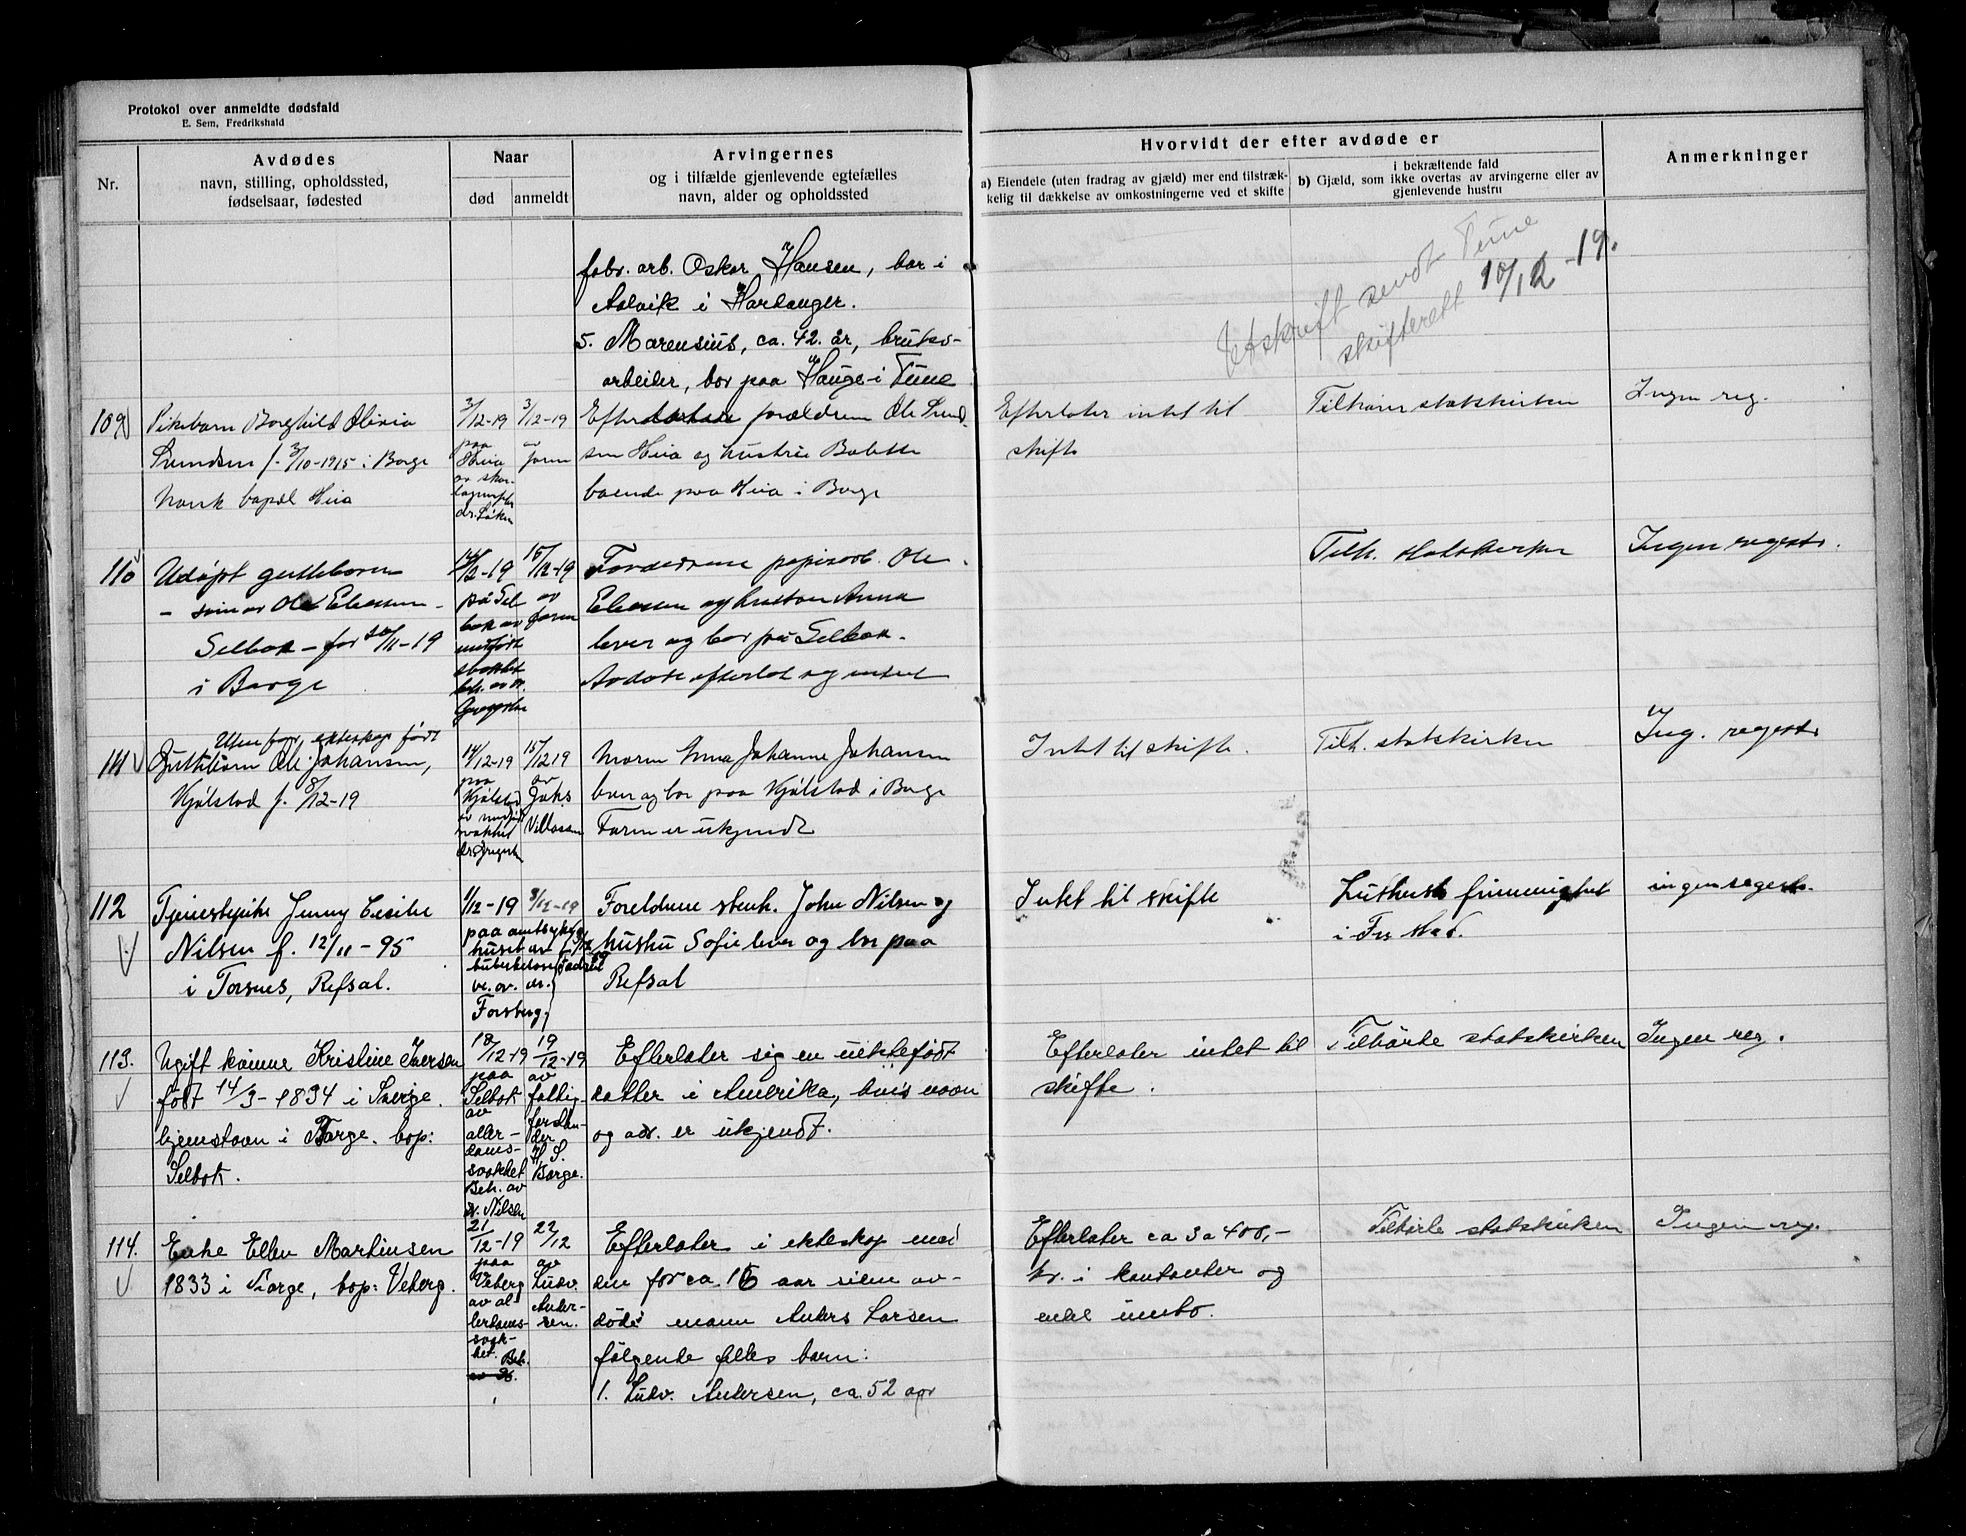 Protokol over anmeldte dødsfald
E. Sem, Fredrikshald
Nr.
Avdødes
navn, stilling, opholdssted,
fødselsaar, fødested
Naar
død
anmeldt
Arvingernes
og i tilfælde gjenlevende egtefælles
navn, alder og opholdssted
Hvorvidt der efter avdøde er
a) Eiendele (uten fradrag av gjæld) mer end tilstræk-
kelig til dækkelse av omkostningerne ved et skifte
i bekræftende fald
b) Gjæld, som ikke overtas av arvingerne eller av
gjenlevende hustru
Anmerkninger
fabr. arb. Oskar Hansen, bor i
Aalvik i Hardanger.
5. Marensius, ca. 42. år, bruks-
arbeider, bor paa Hauge i Tune
Utskrift sendt Tune
skifterett 10/12-19.
109
Pikebarn Borghild Olivia
Svendsen f. 3/10-1915 i Borge
Norsk bopæl Hiia
3/12-19
paa
Hiia
av skar-
lagensfeber
dr. Löken
3/12-19
av
faren
forældrene Ole Svend-
sen Hiia og hustru Bolette
boende paa Hiia i Borge
Efterlater intet til
skifte
Tilhører statskirken
Ingen reg.
110
Udöpt guttebarn
- sönn av Ole Eliassen -
Selbak - før 30/11-19
i Borge
14/12-19
på Sel
bak av
medfødt
svakhet
beh. av dr.
15/12-19
av
faren
Forældrene papirarb. Ole
Eliassen og hustru Anna
lever og bor på Selbak.
Avdøde efterlot sig intet
Tilh. statskirken
Ingen registr.
111
Uten for ekteskap født
Guttebarn Ole Johansen,
Kjølstad f. 8/12-19
14/12-19
paa
Kjølstad
av medfødt
svakhet
15/12 19
av
Johs
Villassen
Moren Anna Johanne Johansen
lever og bor paa Kjølstad i Borge
Faren er ukjendt
Intet til skifte.
Tilh. statskirken
Ing. registr
112
Tjenestepike Jenny Cecilie
Nilsen f. 12/11-95
i Torsnes, Refsal.
1/12-19
paa amtsyke
huset av
tuberkulose
be. av. dr.
Forsberg
3/12-19
Foreldrene stenh. John Nilsen og
hustru Sofie lever og bor paa
Refsal
Intet til skifte
Luthersk frimenighet
i Fr. stad.
ingen registr.
113.
Ugift kvinne Kristine Iversen
født 14/3-1834 i Sverge.
hjemstavn i Borge. bop:
Selbak.
18/12-19
paa
Selbak
av
aller-
doms-
svakhet
Beh. av
dr. Nilsen
19/12-19
av
fattig-
forstan-
der
H. S.
Borge.
Efterlater sig en uekte født
datter i Amerika, hvis navn
og adr. er ukjendt.
Efterlater intet til
skifte.
Tilhörte statskirken
Ingen reg.
114.
Enke Ellen Martinsen
1833 i Borge, bop: Veberg.
21/12-19
paa
Veberg
av al-
lerdoms-
svak-
het. Beh.
22/12
av
Ludv.
Ander-
sen.
Efterlater i ekteskap med
den for ca. 16 aar siden av-
döde mann Anders Larsen
følgende felles barn:
1. Ludv. Andersen, ca. 52 aar
Efterlater ca 3 a 400,-
kr. i kontanter og
endel innbo.
Tilhörte statskirken
Ingen reg.